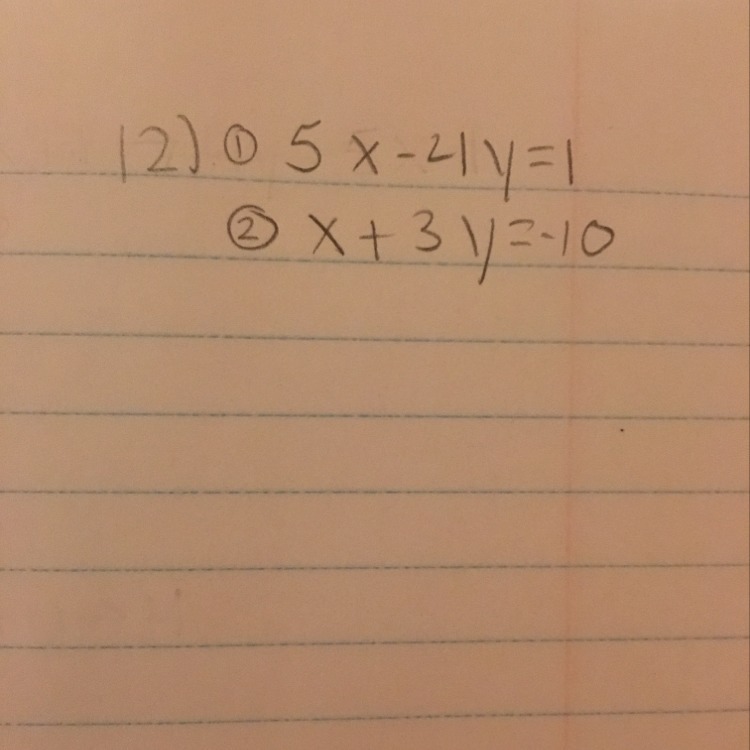 12) ① 5x-21y=1
② x+3y=-10